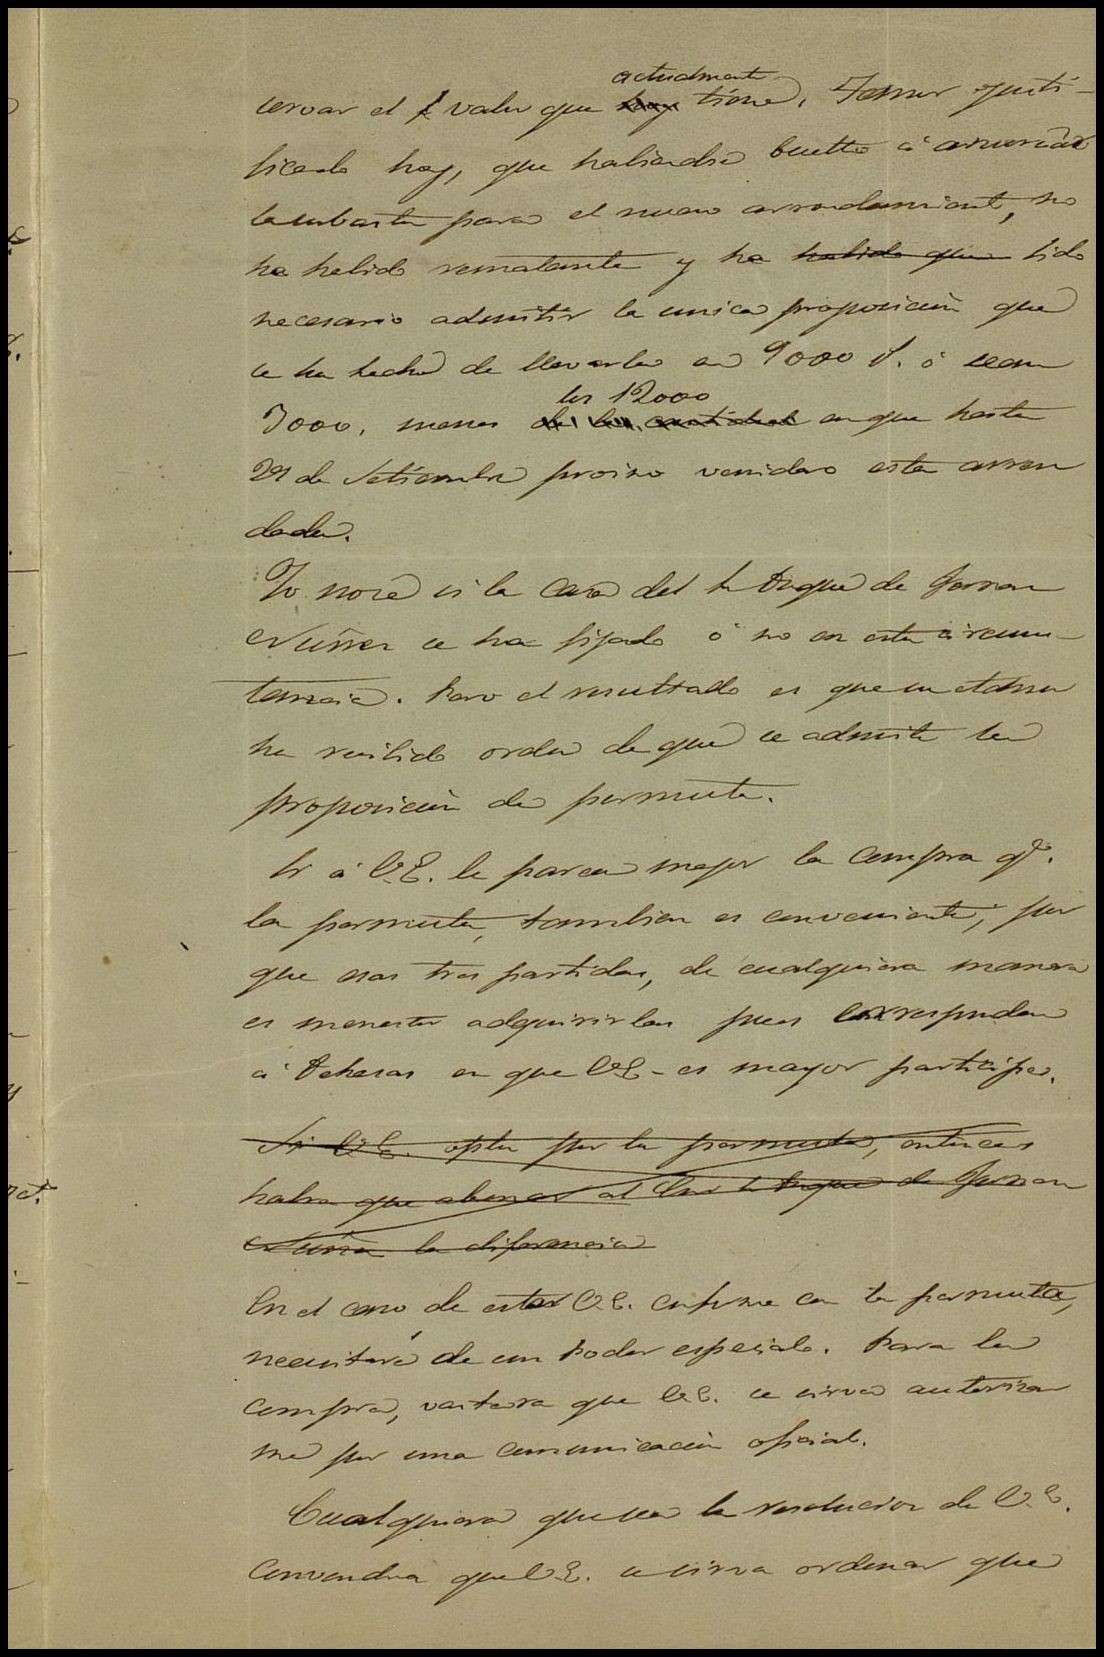 servar el valor que hoy actualmente tiene. Temor justi-
ficado hoy, que habiendose buelto á anunciar
la subasta para el nuevo arrendamiento, no
ha habido rematante y ha habido que sido
necesario admitir la unica proposición que
se ha hecho de llevarla en 9000 r. ó sean
3000, menos de la cantidad los 12000 en que hasta
29 de Setiembre procsimo venidero esta arren
dada.
Yo no sé si la Casa del Sr Duque de Fernan
Nuñez se ha fijado ó no en esta circuns-
tancia. Pero el resultado es que su
ha recibido orden de que se admita la
proposición de permuta.
Si á V.E. le parece mejor la compra qe.
la permuta, tambien es conveniente, por
que esas tres partidas, de cualquiera manera
es menester adquirirlas pues corresponden
á Dehesas en que V.E. es mayor participe.
Si V.E. opta por la permuta, entonces
habra que abonar al Sr Duque de Fernan
Nuñez la diferencia
En el caso de estar V.E. conforme con la permuta,
necesitaré de un Poder especial. Para la
compra, vastara que V.E. se sirva autorizar
me por una comunicación oficial.
Cualquiera que sea la resolucion de V.E.
convendra que V.E. se sirva ordenar que